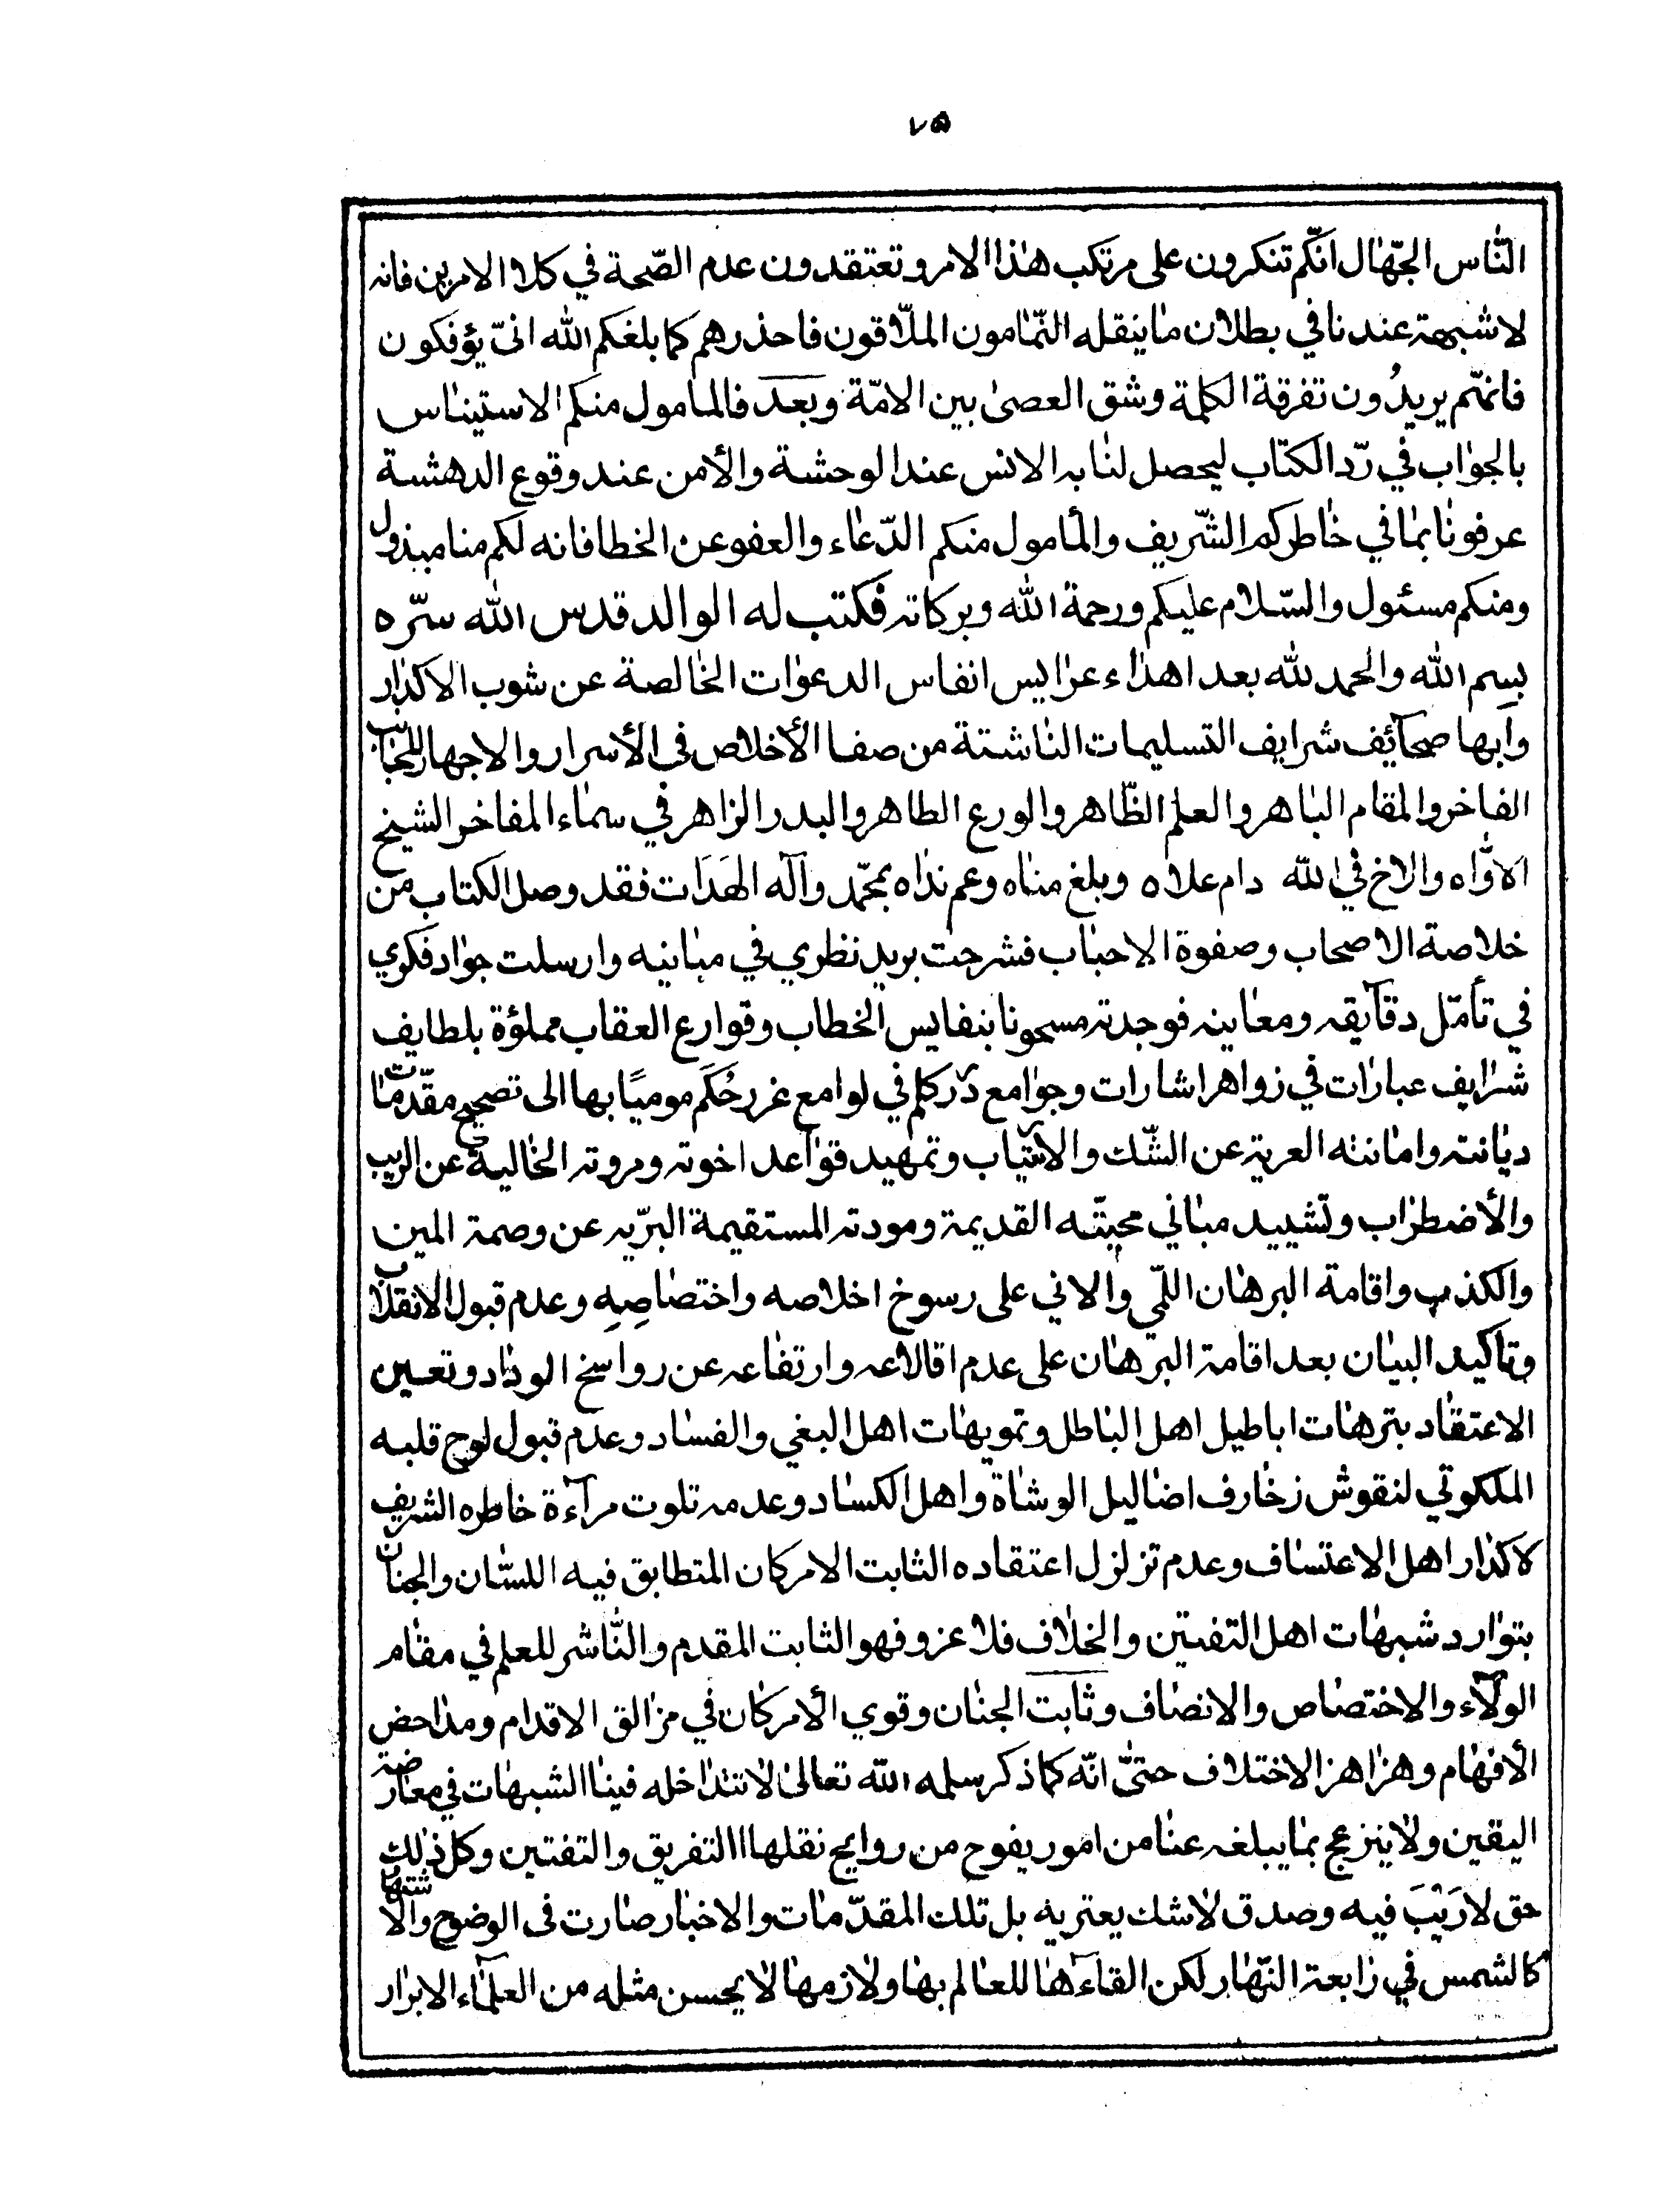 ٧٥
النّاس الجهّال انّكم تنكرون على مرتكب هذا الامر وتعتقدون عدم الصّحة في كلا الامرين فانه
لاشبهة عندنا في بطلان ما ينقله النّمامون الملّاقون فاحذرهم كما بلغكم الله انىّ يؤفكون
فانهّم يريدُون تفرقة الكلمة وشق العصىٰ بين الامّة وبعد فالمامول منكم الاستيناس
بالجواب في ردّ الكتاب ليحصل لنا به الانس عند الوحشة والأمن عند وقوع الدهشة
عرفونا بما في خاطركم الشّريف والمأمول منكم الدّعاء والعفو عن الخطا فانه لكم منا مبذول
ومنكم مسئول والسّلام عليكم ورحمة الله وبركاته فكتب له الوالد قدس الله سرّه
بسِم الله والحمد لله بعد اهداء عرايس انفاس الدعوات الخالصة عن شوب الاكدار
وابها صحآئف شرايف التسليمات الناشئة من صفا الأخلاص فى الأسرار والاجهار للجناب
الفاخر والمقام الباهر والعلم الظّاهر والورع الطاهر والبدر الزاهر في سماء المفاخر الشيخ
الاوّاه والاخ في الله دام علاه وبلغ مناه وعم نداه بمحمّد وآله الهَدَات فقد وصل الكتاب من
خلاصة الاصحاب وصفوة الاحباب فشرحت بريد نظري في مبانيه وارسلت جواد فكري
في تأمّل دقآيقه ومعاينه فوجدته مسحونا بنفايس الخطاب وقوارع العقاب مملؤة بلطايف
شرايف عبارات في زواهر اشارات وجوامع درر كلم في لوامع غرر حُكَم موميًا بها الى تصحيح مقدّمات
ديانته وامانته العرية عن الشّك والارتياب وتمهيد قواعد اخوته ومروته الخالية عن الريب
والأضطراب وتشييد مباني محبّته القديمة ومودته المستقيمة البرّيه عن وصمة المين
والكذب واقامة البرهان اللّمي والاني على رسوخ اخلاصه واختصاصِهِ وعدم قبول الانقلاب
وتاكيد البيان بعد اقامة البرهان على عدم اقالاعه وارتفاعه عن رواسخ الوداد وتعسين
الاعتقاد بترهات اباطيل اهل الباطل وتمويهات اهل البغي والفساد وعدم قبول لوح قلبه
الملكوتي لنقوش زخارف اضاليل الوشاة واهل الكساد وعدمه تلوت مرآءة خاطره الشريف
لاكدار اهل الاعتساف وعدم تزلزل اعتقاده الثابت الامركان المتطابق فيه اللسّان والجنان
بتوارد شبهات اهل التفتين والخلاف فلا عزو فهو الثابت المقدم والنّاشر للعلم في مقام
الولآء والاختصاص والانصاف وثابت الجنان وقوي الأمركان في مزالق الاقدام ومداحض
الأفهام وهزاهز الاختلاف حتىّ انّه كما ذكر سلمه الله تعالىٰ لاتتداخله فينا الشبهات في معارضة
اليقين ولاينزعج بما يبلغه عنا من امور يفوح من روايح نقلها التفريق والتفتين وكل ذلك
حق لارَيْبَ فيه وصدق لاشك يعتريه بل تلك المقدّمات والاخبار صارت فى الوضوح والاشتهار
كالشمس في رابعة النّهار لكن القآءها للعالم بها ولازمها لا يحسن مثله من العلمآء الابرار